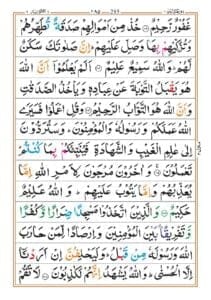 غَفُوْرٌ رَّحِيْمٌ ۝ خُذْ مِنْ اَمْوَالِهِمْ صَدَقَةً تُطَهِّرُهُمْ
وَتُزَكِّيْهِمْ بِهَا وَصَلِّ عَلَيْهِمْ ؕ اِنَّ صَلٰوتَكَ سَكَنٌ
لَّهُمْ ؕ وَاللّٰهُ سَمِيْعٌ عَلِيْمٌ ۝ اَلَمْ يَعْلَمُوْۤا اَنَّ اللّٰهَ
هُوَ يَقْبَلُ التَّوْبَةَ عَنْ عِبَادِهٖ وَيَاْخُذُ الصَّدَقٰتِ
وَاَنَّ اللّٰهَ هُوَ التَّوَّابُ الرَّحِيْمُ ۝ وَقُلِ اعْمَلُوْا فَسَيَرَى
اللّٰهُ عَمَلَكُمْ وَرَسُوْلُهٗ وَالْمُؤْمِنُوْنَ ؕ وَسَتُرَدُّوْنَ
اِلٰى عٰلِمِ الْغَيْبِ وَالشَّهَادَةِ فَيُنَبِّئُكُمْ بِمَا كُنْتُمْ
تَعْمَلُوْنَ ۝ وَاٰخَرُوْنَ مُرْجَوْنَ لِاَمْرِ اللّٰهِ اِمَّا
يُعَذِّبُهُمْ وَاِمَّا يَتُوْبُ عَلَيْهِمْ ؕ وَاللّٰهُ عَلِيْمٌ
حَكِيْمٌ ۝ وَالَّذِيْنَ اتَّخَذُوْا مَسْجِدًا ضِرَارًا وَّكُفْرًا
وَّتَفْرِيْقًۢا بَيْنَ الْمُؤْمِنِيْنَ وَاِرْصَادًا لِّمَنْ حَارَبَ
اللّٰهَ وَرَسُوْلَهٗ مِنْ قَبْلُ ؕ وَلَيَحْلِفُنَّ اِنْ اَرَدْنَاۤ
اِلَّا الْحُسْنٰى ؕ وَاللّٰهُ يَشْهَدُ اِنَّهُمْ لَكٰذِبُوْنَ ۝ لَا تَقُمْ